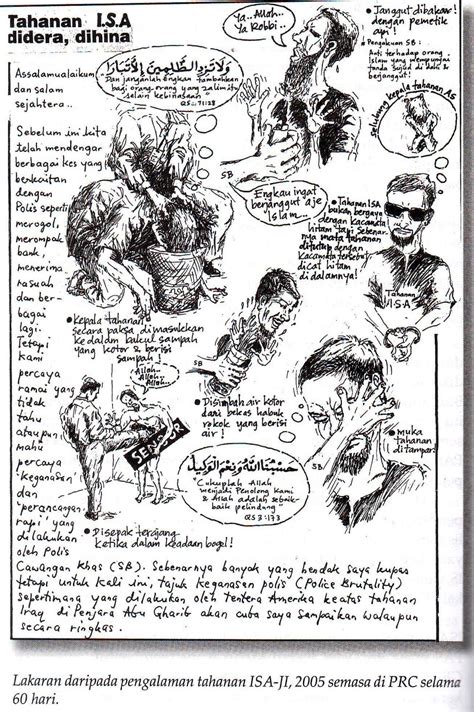 Tahanan I.S.A
didera, dihina
Assalamualaikum
dan salam
sejahtera..
Sebelum ini kita
telah mendengar
berbagai kes yang
berkaitan
dengan
Polis seperti
merogol,
merompak
bank,
menerima
rasuah
dan ber-
bagai
lagi.
Tetapi
kami
percaya
ramai yang
tidak
tahu
ataupun
mahu
percaya
'keganasan'
dan
'perancangan
rapi' yang
dilakukan
oleh Polis
Cawangan Khas (SB). Sebenarnya banyak yang hendak saya kupas
tetapi untuk kali ini, tajuk keganasan polis (Police Brutality)
sepertimana yang dilakukan oleh tentera Amerika keatas tahanan
Iraq di Penjara Abu Gharib akan cuba saya sampaikan walaupun
secara ringkas.
وَلَا تَزِدِ الظَّالِمِينَ إِلَّا تَبَارًا
Dan janganlah engkau tambahkan
bagi orang-orang yang zalim itu
selain kebinasaan
QS: 71:28
Ya.. Allah..
Ya Robbi..
• Janggut dibakar
dengan pemetik
api!
• Pengakuan SB:
Anti terhadap orang
Islam yang mempunyai
tanda sujud di dahi &
berjanggut!
Selubung kepala tahanan AS
SB
Engkau ingat
berjanggut aje
Islam...
• Tahanan ISA
bukan bergaya
dengan kacamata
hitam tapi sebenar-
nya mata tahanan
ditutup dengan
kacamata tersebut
dicat hitam
di dalamnya!
Tahanan
I.S.A
• Kepala tahanan
secara paksa dimasukkan
ke dalam bakul sampah
yang kotor & berisi
sampah!
Allah..
Allah..
Allah...
SB
SENSOR
• Disimbah air kotor
dari bekas habuk
rokok yang berisi
air!
SB
• muka
tahanan
ditampar!
حَسْبُنَا اللَّهُ وَنِعْمَ الْوَكِيلُ
"Cukuplah Allah
menjadi Penolong kami
& Allah adalah sebaik-
baik pelindung"
QS 3:173
• Disepak terajang
ketika dalam keadaan bogel!
Lakaran daripada pengalaman tahanan ISA-JI, 2005 semasa di PRC selama
60 hari.